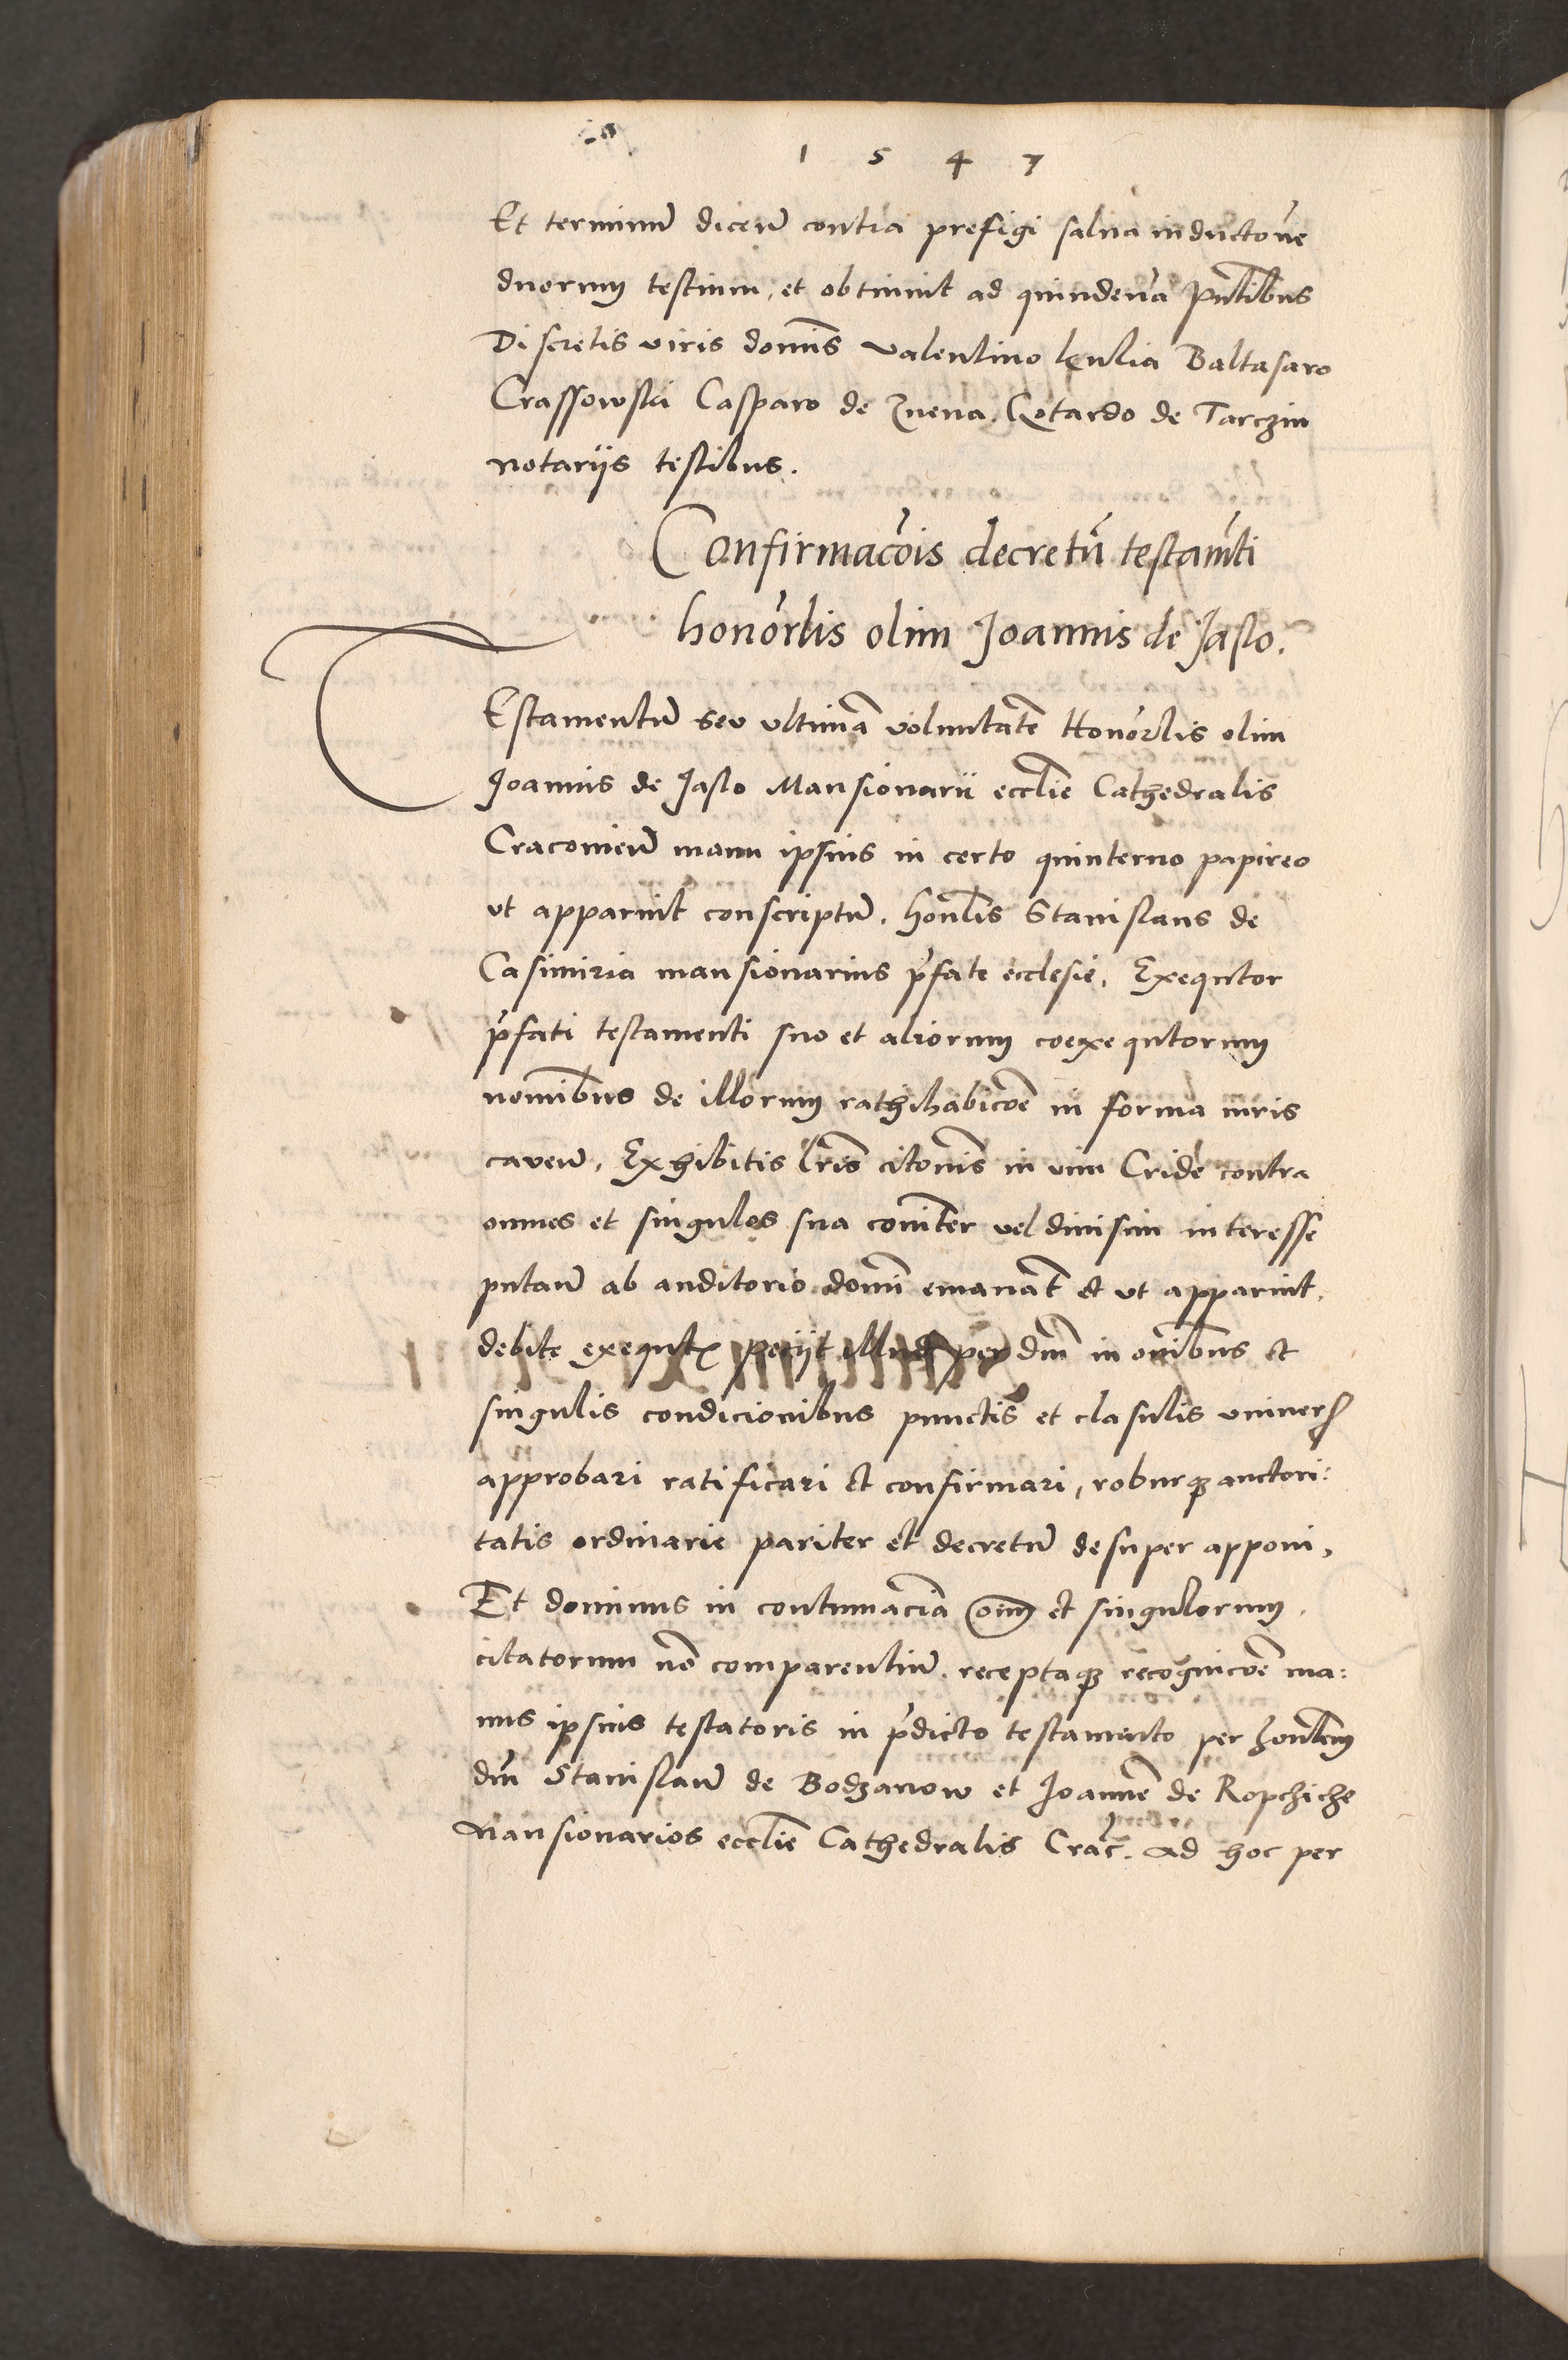 1547
Et terminũ dicen̄ contra prefigi salua inductōne
duorum testium, et obtinuit ad quindenā pn̄tibus
Discretis viris domīs Valentino Kulia Baltasaro
Crassowski Casparo de Znena, Gotardo de Tarczin
notariis testibus.
Confirmacōis decretū testamēti
honorlis olim Joannis de Jaslo.
TEstamentū seu vltimā voluntatē Honorlis olim
Joannis de Jaslo Mansionarii ecclīe Cathedralis
Cracouien̄ manu ipsius in certo quinterno papireo
vt apparuit conscriptū. honlis Stanislaus de
Casimiria mansionarius p̄fate ecclesie, Exequtor
p̄fati testamenti suo et aliorum coexequtorum
nomībus de illorum rathihabicōe in forma iuris
caven̄, Exhibitis lr̄is citōnis in vim Cride contra
omnes et singulos sua com̄iter vel diuisim interesse
putan̄ ab auditorio domī emanat̄ et vt apparuit,
debite exequt̄ petiit illud per dm̄ in om̄ibus et
singulis condicionibus punctis et clasulis vniuers̄
approbari ratificari et confirmari, roburqȝ auctori:
tatis ordinarie pariter et decretū desuper apponi,
Et dominus in contumaciā om̄ium et singulorum
citatorum nō comparentiū, receptaqȝ recognicōe ma:
nus ipsius testatoris in p̄dicto testamento per honlem
dm̄ Stanislaū de Bodzanow et Joannē de Ropchiche
Mansionarios ecclīe Cathedralis Crac̄. ad hoc per